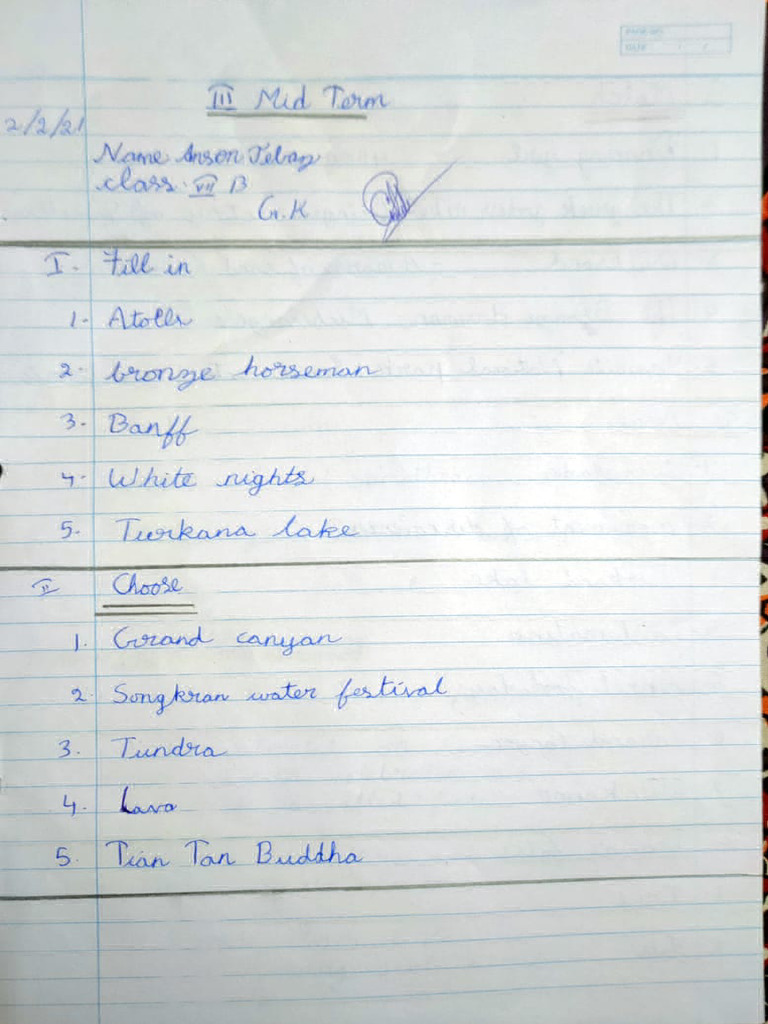 III Mid Term
2/2/21
Name Anson Jebaz
class. VII B
G.K
I. Fill in
1. Atolls
2. bronze horseman
3. Banff
4. White nights
5. Turkana lake
II Choose
1. Grand canyan
2. Songkran water festival
3. Tundra
4. Lava
5. Tian Tan Buddha